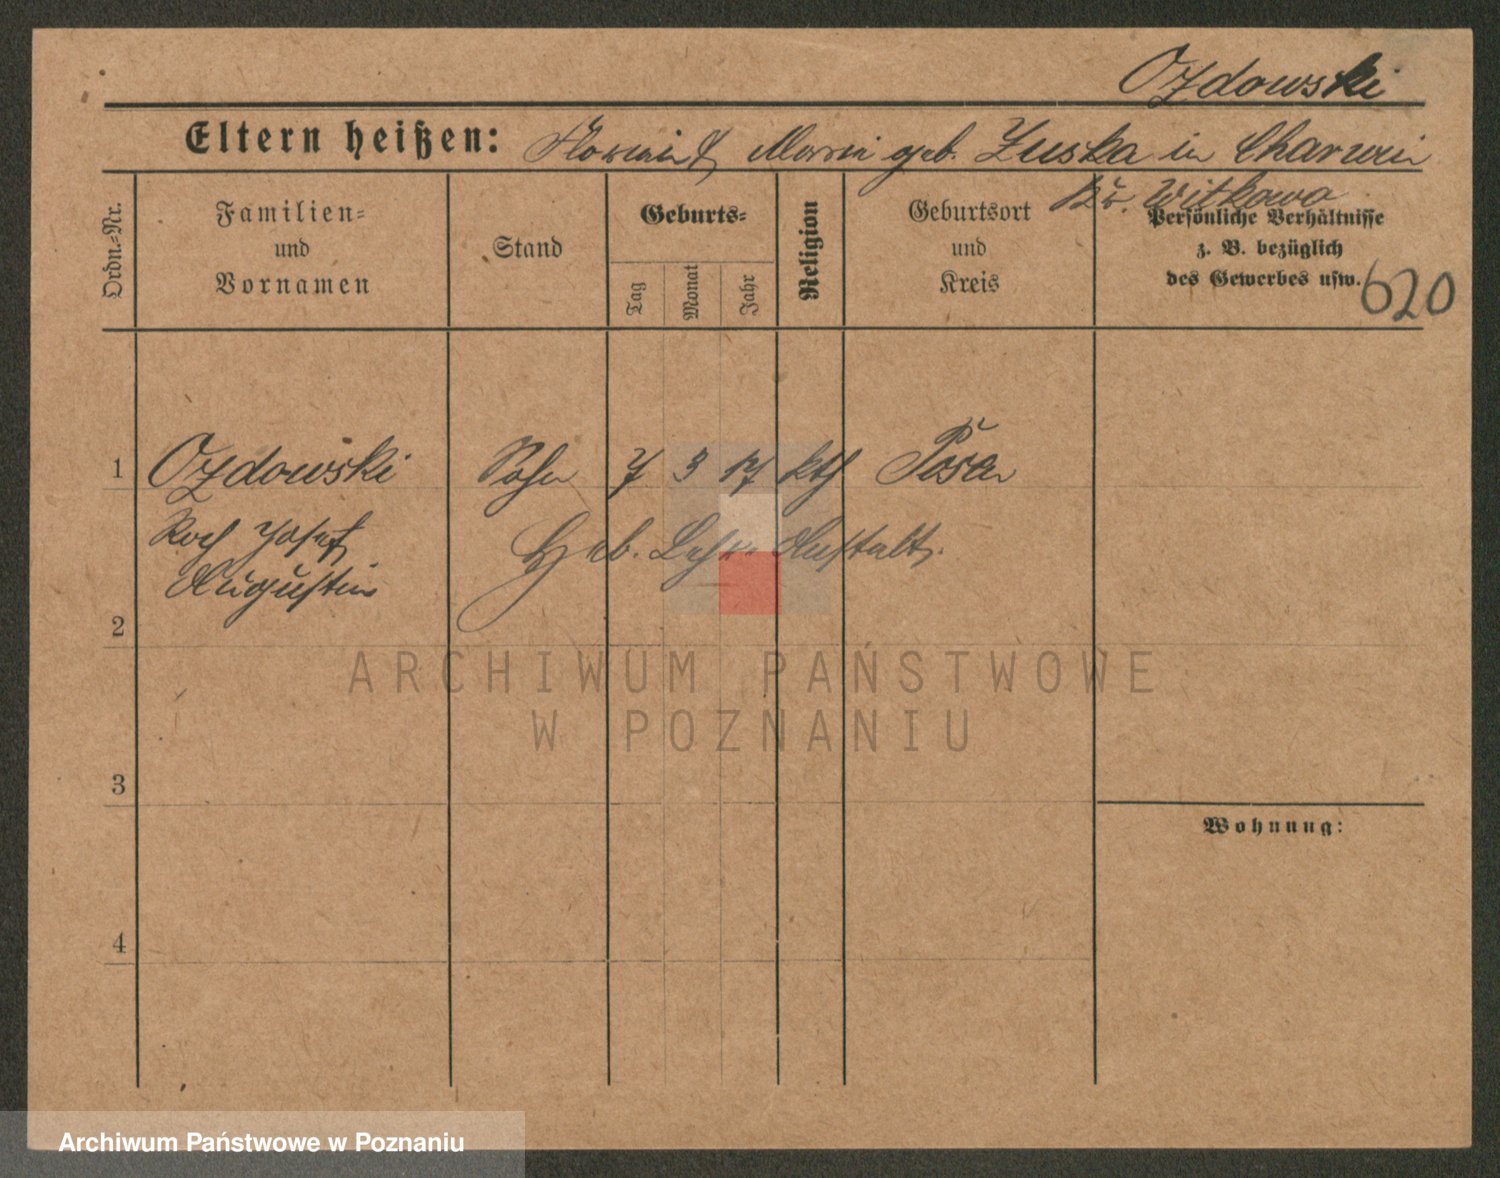 Ozdowski
Eltern heißen: Florian & Maria geb. Zuska in Charwin
Kr. Witkowo
Ordn.=Nr.
Familien=
und
Vornamen
Stand
Geburts=
Tag
Monat
Jahr
Religion
Geburtsort
und
Kreis
Persönliche Verhältnisse
z. B. bezüglich
des Gewerbes usw.
620
1 Ozdowski Sohn 7 3 17 kth Posen
Roch Josef Heb. Lehr Anstalt.
Augustin
2
ARCHIWUM PAŃSTWOWE
W POZNANIU
3
Wohnung:
4
Archiwum Państwowe w Poznaniu